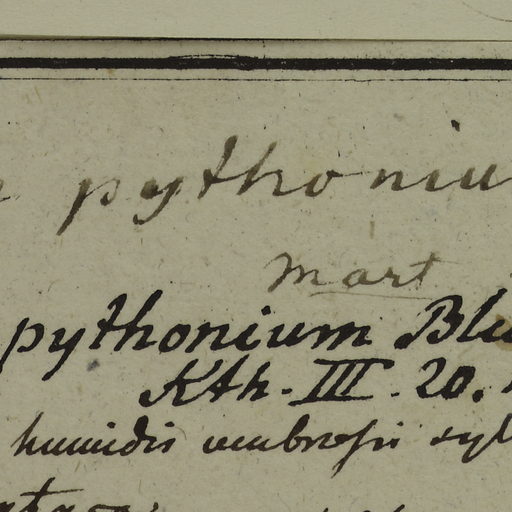 pythoniu
Mart
pythonium Blu
Kth. III. 20.
humidis umbrosis syl